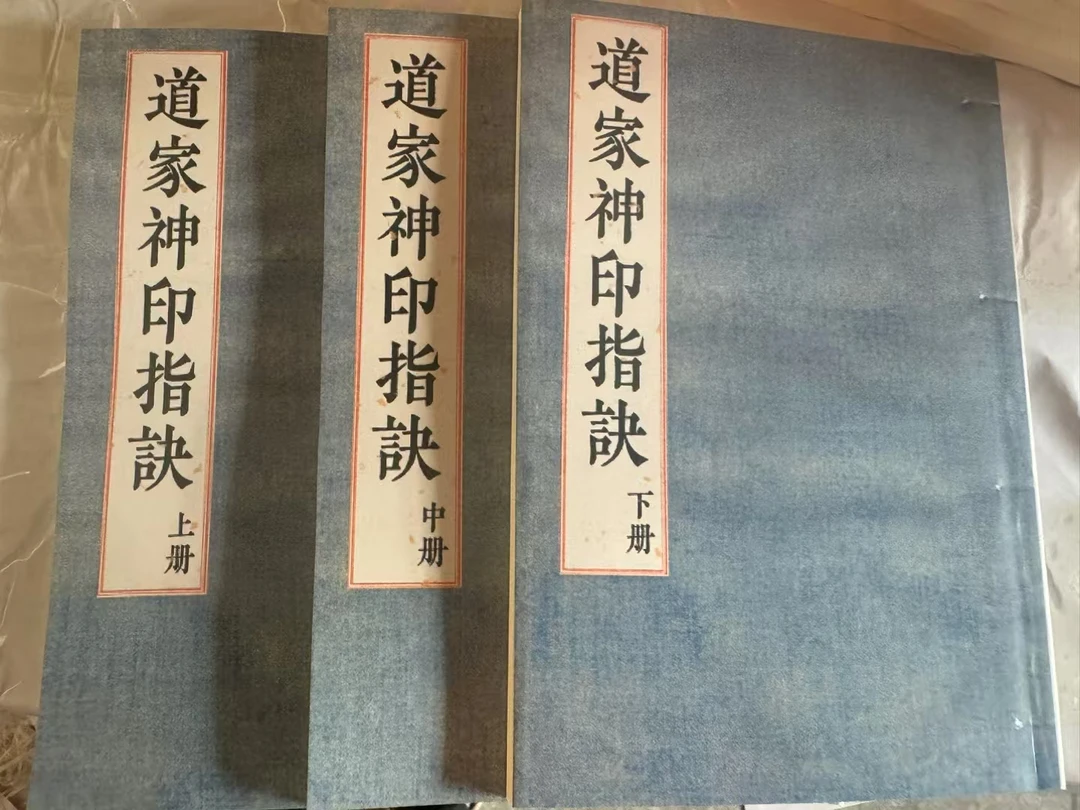 道家神印指訣
上册
道家神印指訣
中册
道家神印指訣
下册